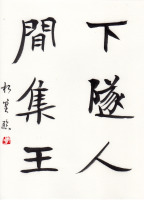 下隧人
間集王